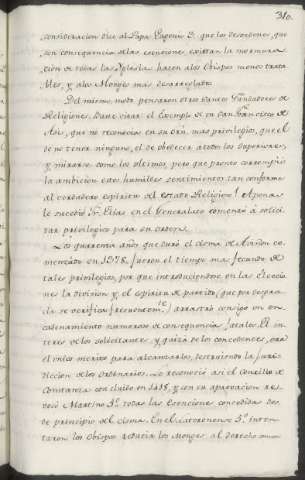 310.
consideracion dice al Papa Eugenio 3. que los desordenes, que
son consequencia de las esenciones, excitan la murmura
cion de toda la Yglesia, hacen alos Obispos menos trata
bles, y alos Monges mas desarreglados.
Del mismo modo pensaron otros Santos Fundadores de
Religiones. Sabe citar el Exemplo de un San Francisco de
Asis, que no reconocia en su orn. mas privilegio, que el
de no tener ninguno, el de obedecer atodos los Superiores,
y mirarse como los ultimos, pero que presto corrompió
la ambicion estos humildes sentimientos tan conforme
al verdadero espiritu del estado Religioso! Apenas
le sucedió Fr. Elias en el Generalato comenzó a solici
tar privilegios para su orden.
Los quarenta años que duró el cisma de Aviñon co
menzado en 1378, fueron el tiempo mas fecundo de
tales privilegios, por que introduciendose en las Eleccio
nes la division y el espiritu de partido, que por desgra
cia se verifica frecuentemte. arrastró consigo un en
cadenamiento numeroso de consequencias fatales. El in
teres de los solicitantes, y quiza de los concedentes, era
el unico merito para alcanzarlos, destruiendo la Juris
diccion de los Ordinarios. Lo reconoció asi el Concilio de
Constanza concluido en 1418, y con su aprobacion re
vocó Martino 5º todas las esenciones concedidas des
de principio del cisma. En el Lateranense 5º inten
taron los Obispos reducir los Monges al derecho comun